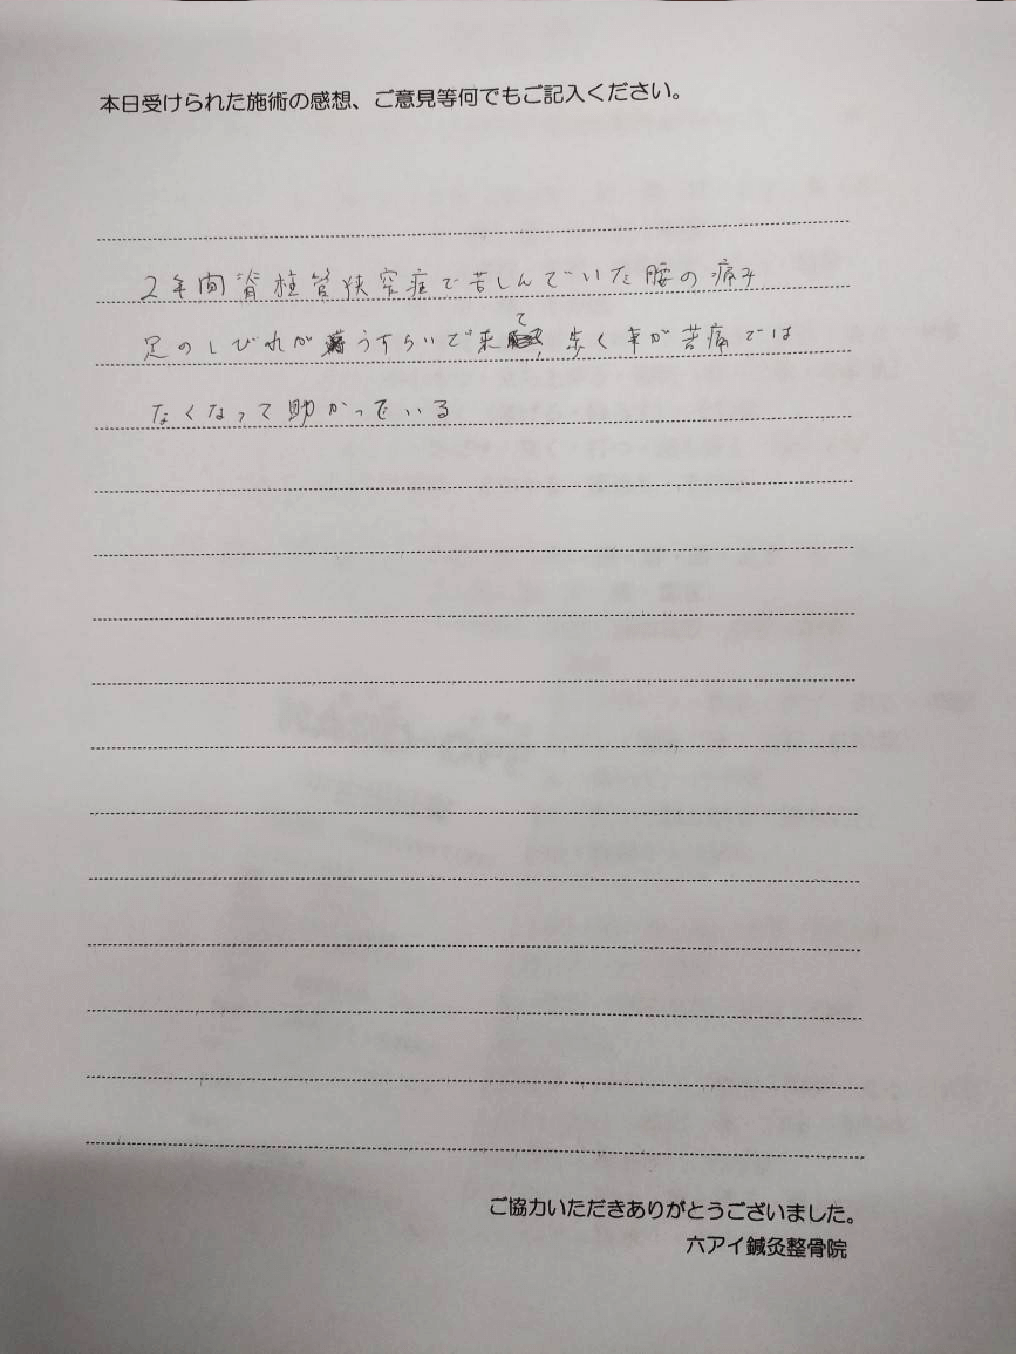 本日受けられた施術の感想、ご意見等何でもご記入ください。
2年間脊柱管狭窄症で苦しんでいた腰の痛み
足のしびれがうすらいで来て歩く事が苦痛では
なくなって助かっている
ご協力いただきありがとうございました。
六アイ鍼灸整骨院